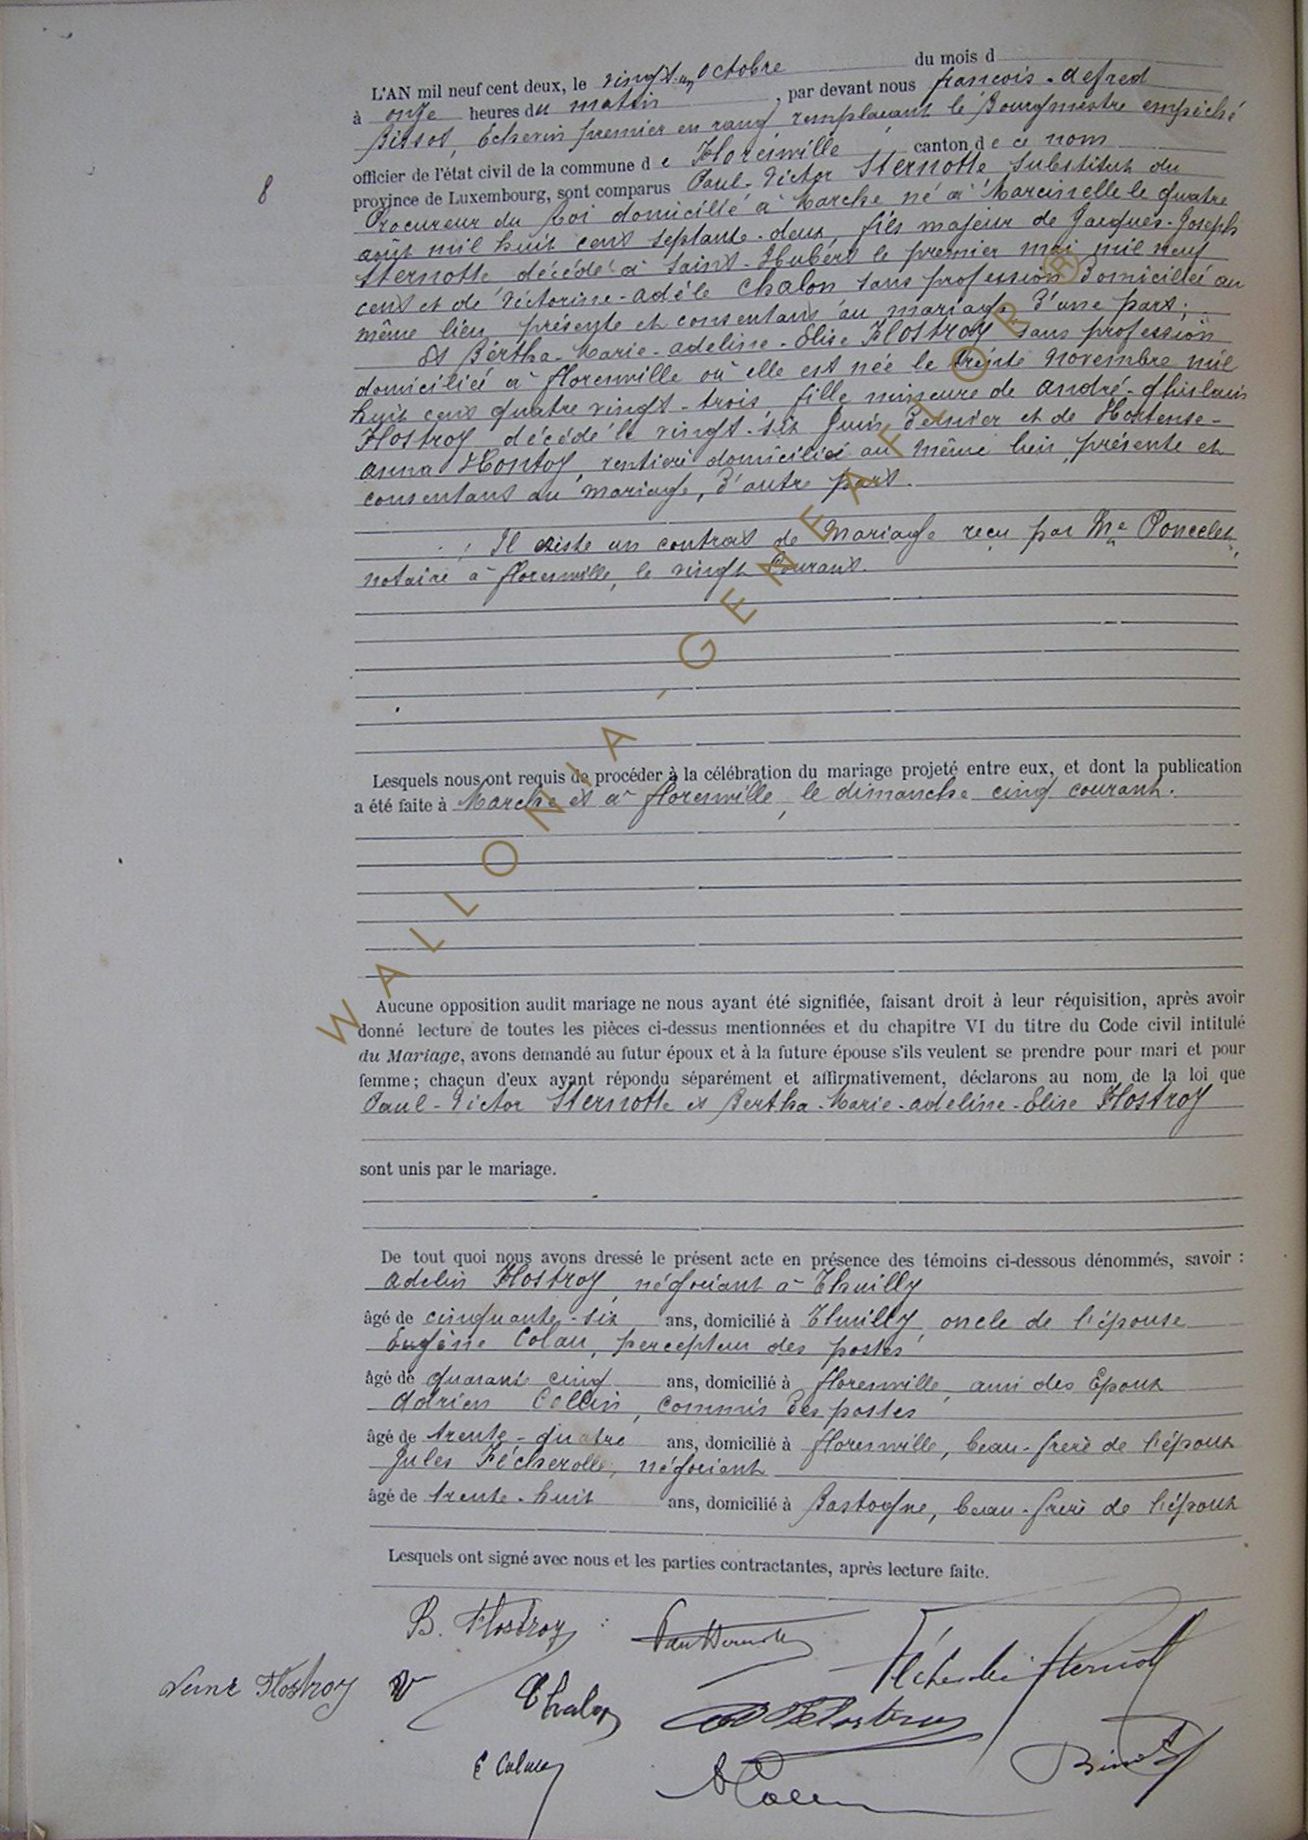 L'AN mil neuf cent deux, le vingt-un octobre du mois d
à onze heures du matin, par devant nous françois-alfred
Bissot, Echevin premier en rang remplaçant le Bourgmestre empêché
officier de l'état civil de la commune de Florenville canton de ce nom
province de Luxembourg, sont comparus Paul-Victor Sternotte substitut du
8
Procureur du Roi domicilié à Marche né à Marcinelle le quatre
août mil huit cent septante-deux, fils majeur de Jacques-Joseph
Sternotte décédé à Saint-Hubert le premier mai mil neuf
cent et de Victorine-adèle Chalon sans profession domiciliée au
même lieu, présente et consentant au mariage, d'une part;
Et Bertha-Marie-adeline-Elise Hostroy sans profession
domiciliée à florenville où elle est née le trente novembre mil
huit cent quatre vingt-trois fille mineure de andré-ghislain
Hostroy décédé le vingt-six Juin dernier et de Hortense-
anna Hontoy, rentière domiciliée au même lieu, présente et
consentant au mariage, d'autre part.
Il existe un contrat de mariage reçu par Me Poncelet,
notaire à florenville, le vingt courant.
Lesquels nous ont requis de procéder à la célébration du mariage projeté entre eux, et dont la publication
a été faite à Marche et à florenville, le dimanche cinq courant.
Aucune opposition audit mariage ne nous ayant été signifiée, faisant droit à leur réquisition, après avoir
donné lecture de toutes les pièces ci-dessus mentionnées et du chapitre VI du titre du Code civil intitulé
du Mariage, avons demandé au futur époux et à la future épouse s'ils veulent se prendre pour mari et pour
femme; chacun d'eux ayant répondu séparément et affirmativement, déclarons au nom de la loi que
Paul-Victor Sternotte et Bertha-Marie-adeline-Elise Hostroy
sont unis par le mariage.
De tout quoi nous avons dressé le présent acte en présence des témoins ci-dessous dénommés, savoir :
adelin Hostroy, négociant à Thuilly
âgé de cinquante-six ans, domicilié à Thuilly, oncle de l'épouse
Eugène Colau, percepteur des postes
âgé de quarante cinq ans, domicilié à florenville, ami des Epoux
Adrien Collin, commis des postes
âgé de trente-quatre ans, domicilié à florenville, beau-frère de l'époux
Jules Fécherolle, négociant
âgé de trente-huit ans, domicilié à Bastogne, beau-frère de l'époux
Lesquels ont signé avec nous et les parties contractantes, après lecture faite.
B. Hostroy Paul Sternotte Fécherolle Sternotte
Hostroy V Chalon Hostroy
Bissot
WALLONIA - GENEAFLOR ®